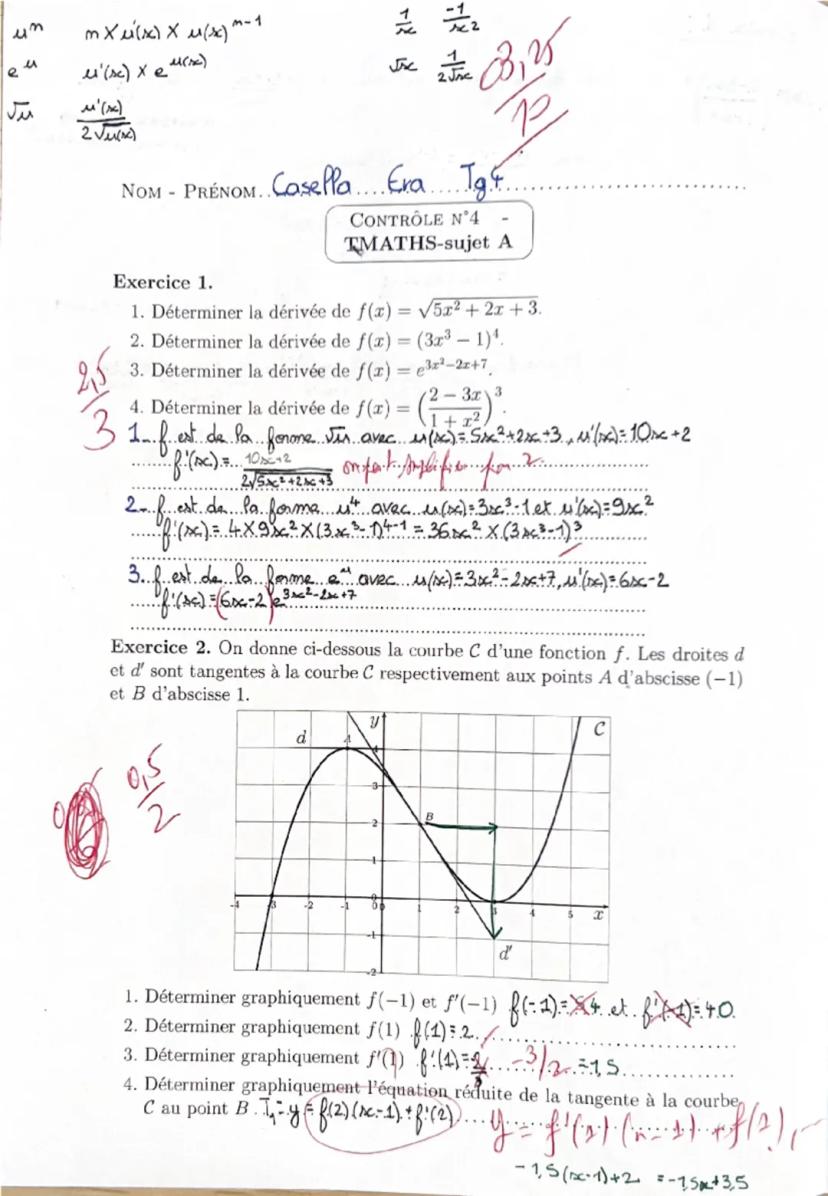 uⁿ n × u'(x) × u(x)ⁿ⁻¹ 1/x -1/x²
eᵘ u'(x) × e^u(x) √x 1/2√x
√u u'(x)/2√u(x)
3,25/10
NOM - PRÉNOM.. Casella.... Era.... Tg4
CONTRÔLE N°4 -
TMATHS-sujet A
Exercice 1.
1. Déterminer la dérivée de f(x) = √(5x² + 2x + 3).
2. Déterminer la dérivée de f(x) = (3x³ − 1)⁴.
3. Déterminer la dérivée de f(x) = e^(3x²−2x+7).
2,5/3
4. Déterminer la dérivée de f(x) = ((2 − 3x)/(1 + x²))³.
1-. f est de la forme √u avec u(x)=5x²+2x+3, u'(x)=10x+2
f'(x)= (10x+2)/(2√(5x²+2x+3)) on peut simplifier par 2
2-. f est de la forme u⁴ avec u(x)=3x³-1 et u'(x)=9x²
f'(x)= 4×9x²×(3x³-1)⁴⁻¹ = 36x²×(3x³-1)³
3. f est de la forme eᵘ avec u(x)=3x²-2x+7, u'(x)=6x-2
f'(x)=(6x-2)e^(3x²-2x+7)
Exercice 2. On donne ci-dessous la courbe C d'une fonction f. Les droites d
et d' sont tangentes à la courbe C respectivement aux points A d'abscisse (−1)
et B d'abscisse 1.
0,5/2
y
d A C
4
3
2 B
1
0
-4 -3 -2 -1 0 1 2 3 4 5 x
-1
d'
-2
1. Déterminer graphiquement f(−1) et f'(−1) f(-1)= 4 et f'(-1)= 0
2. Déterminer graphiquement f(1) f(1)=2
3. Déterminer graphiquement f'(1) f'(1)= -3/2 =-1,5
4. Déterminer graphiquement l'équation réduite de la tangente à la courbe
C au point B. T₁=y = f(2)(x-1)+f'(2) y = f'(1)(x-1)+f(1)
-1,5(x-1)+2 = -1,5x+3,5